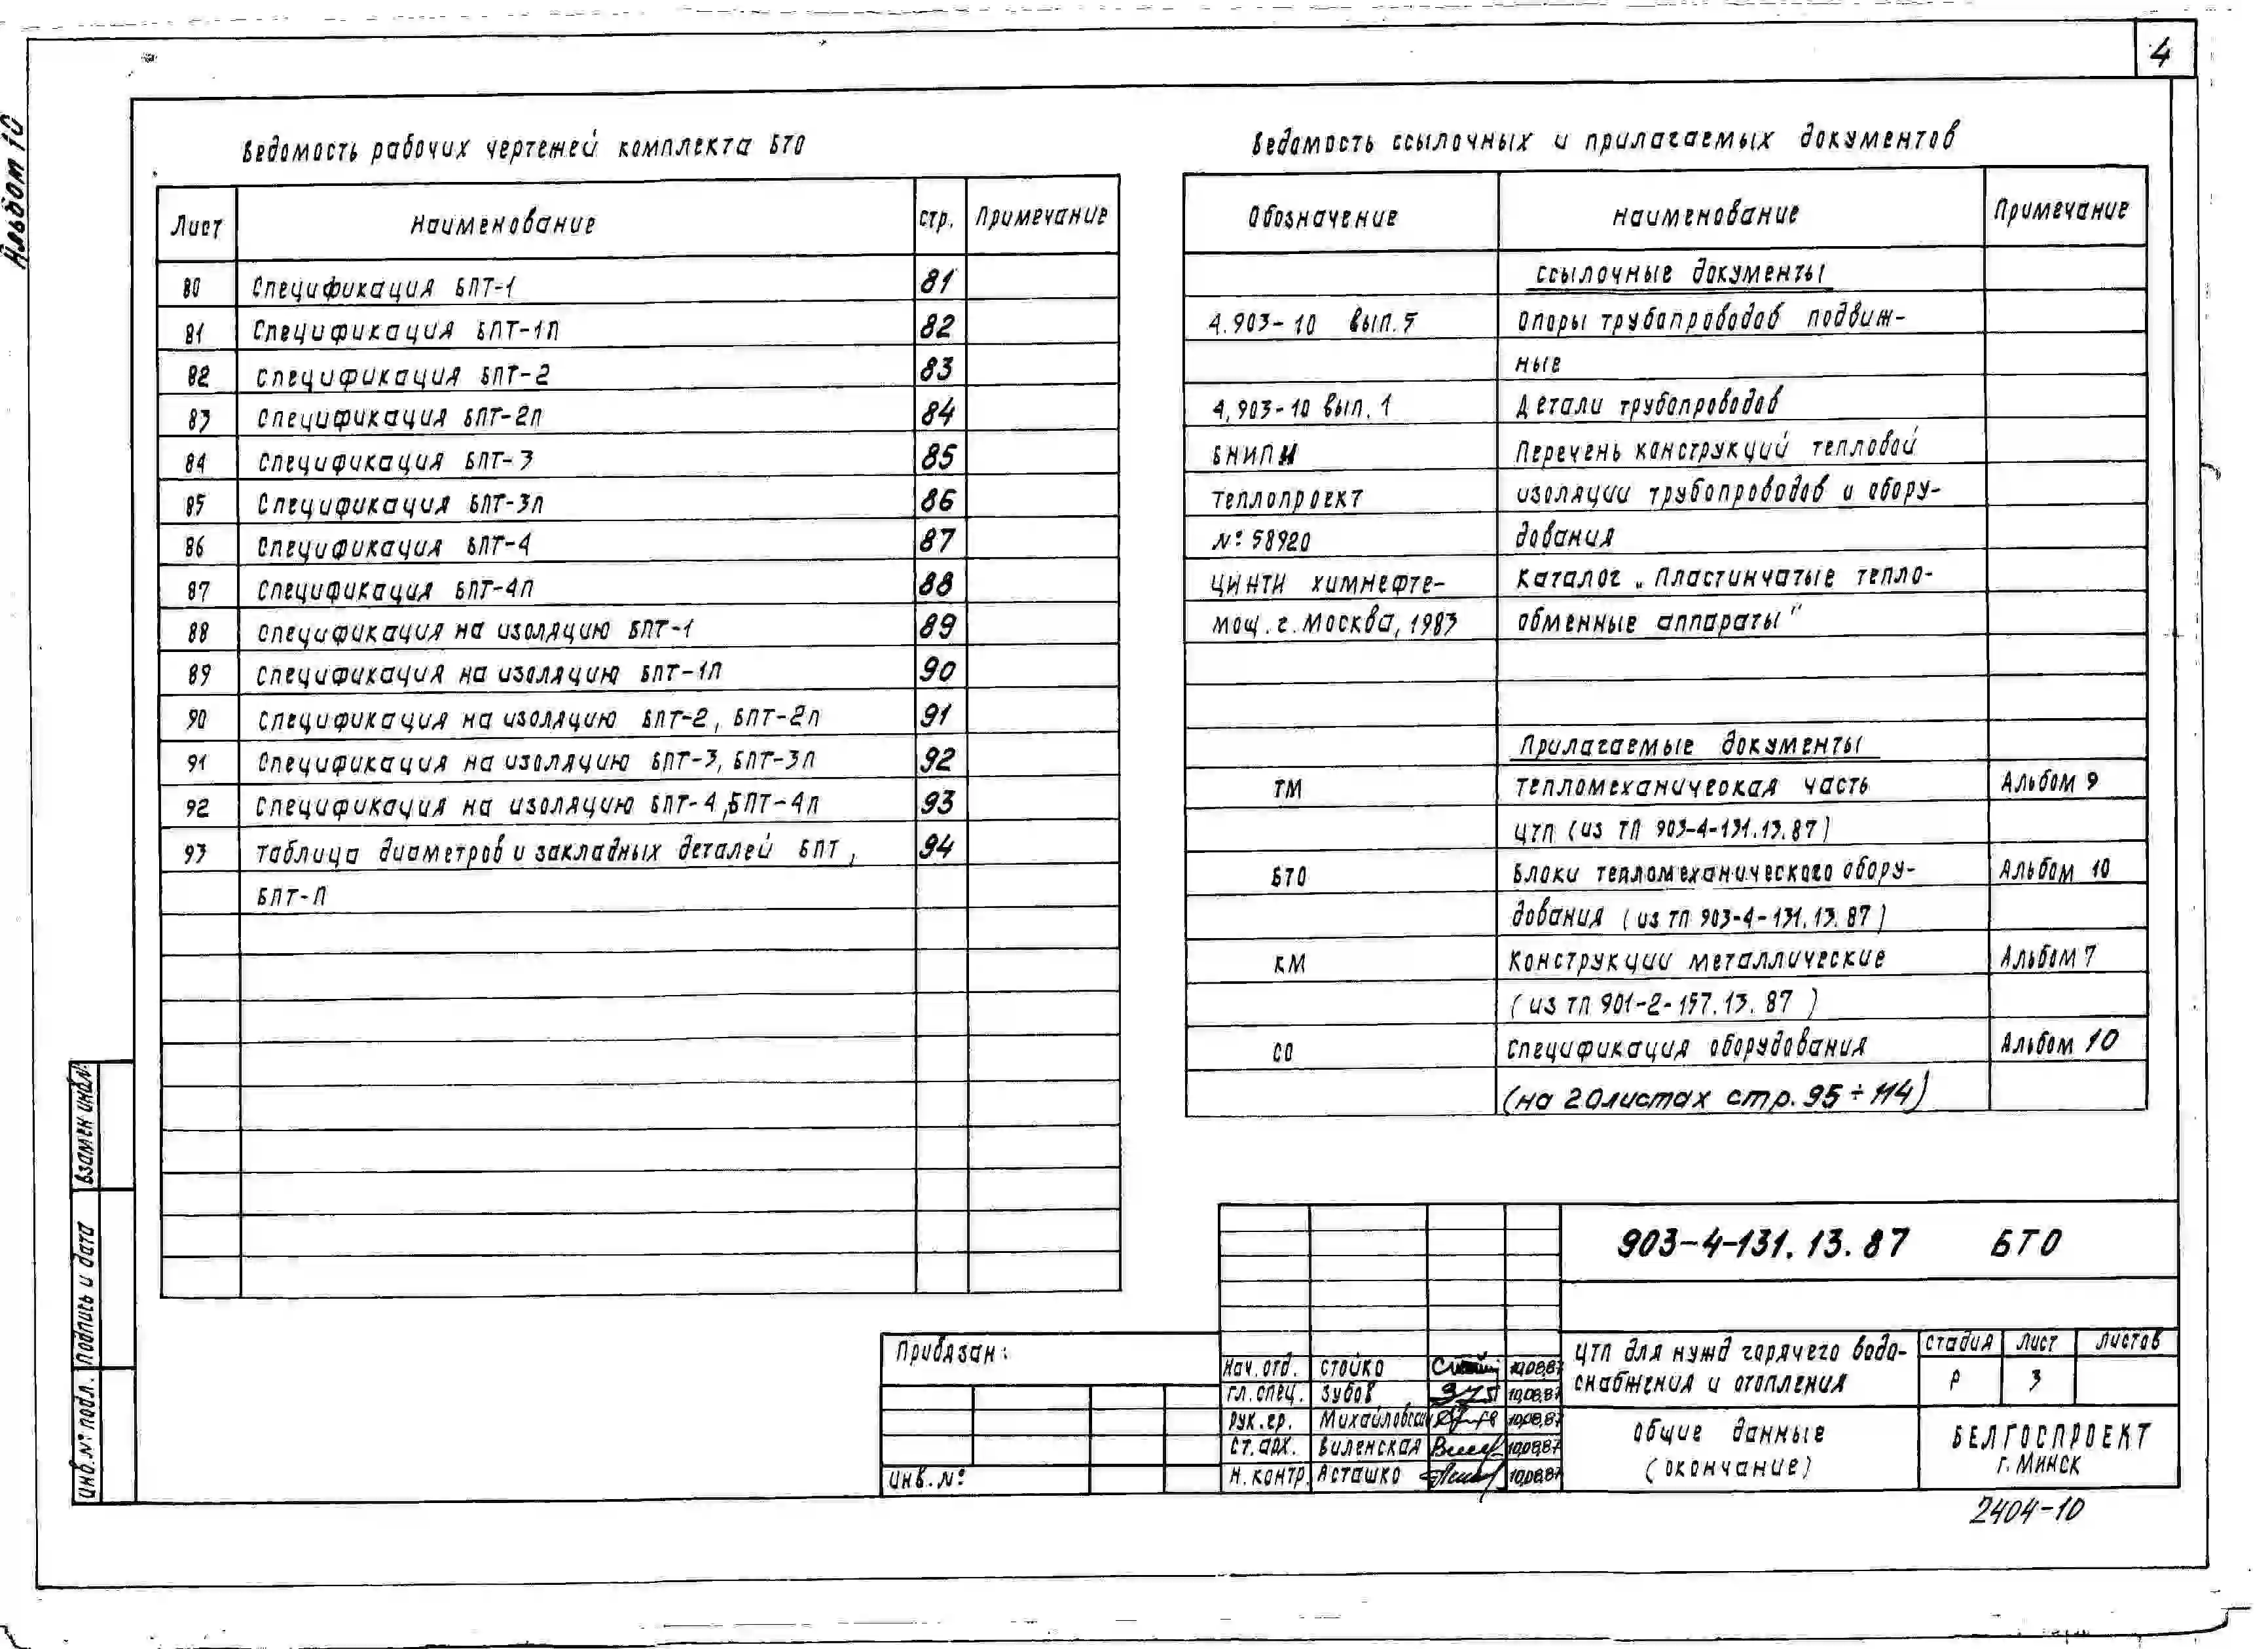 4
Альбом 10
Ведомость рабочих чертежей комплекта БТО
Лист Наименование стр. Примечание
80 Спецификация БПТ-1 81
81 Спецификация БПТ-1П 82
82 Спецификация БПТ-2 83
83 Спецификация БПТ-2П 84
84 Спецификация БПТ-3 85
85 Спецификация БПТ-3П 86
86 Спецификация БПТ-4 87
87 Спецификация БПТ-4П 88
88 Спецификация на изоляцию БПТ-1 89
89 Спецификация на изоляцию БПТ-1П 90
90 Спецификация на изоляцию БПТ-2, БПТ-2П 91
91 Спецификация на изоляцию БПТ-3, БПТ-3П 92
92 Спецификация на изоляцию БПТ-4, БПТ-4П 93
93 Таблица диаметров и закладных деталей БПТ, 94
БПТ-П
Ведомость ссылочных и прилагаемых документов
Обозначение Наименование Примечание
Ссылочные документы
4.903-10 вып. 5 Опоры трубопроводов подвиж-
ные
4.903-10 вып. 1 Детали трубопроводов
ВНИПИ Перечень конструкций тепловой
Теплопроект изоляции трубопроводов и обору-
№ 58920 дования
ЦИНТИ химнефте- Каталог „Пластинчатые тепло-
маш. г. Москва, 1983 обменные аппараты"
Прилагаемые документы
ТМ Тепломеханическая часть Альбом 9
ЦТП (из ТП 903-4-131.13.87)
БТО Блоки тепломеханического обору- Альбом 10
дования (из ТП 903-4-131.13.87)
КМ Конструкции металлические Альбом 7
(из ТП 901-2-157.13.87)
СО Спецификация оборудования Альбом 10
(на 20листах стр. 95÷114)
Взамен инв.№
Подпись и дата
Инв.№ подл.
Привязан:
Инв.№
903-4-131.13.87 БТО
Нач. отд. Стойко 10.08.87
Гл. спец. Зубов 10.08.87
Рук. гр. Михайловская 10.08.87
Ст. арх. Виленская 10.08.87
Н. контр. Асташко 10.08.87
ЦТП для нужд горячего водо-
снабжения и отопления
Стадия Лист Листов
Р 3
Общие данные
(окончание)
БЕЛГОСПРОЕКТ
г. Минск
2404-10